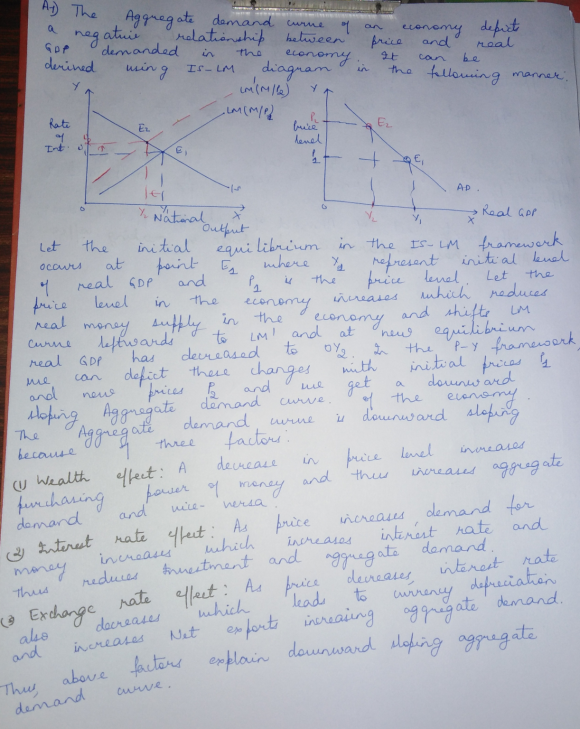 A1) The Aggregate demand curve of an economy depicts
a negative relationship between price and real
GDP demanded in the economy. It can be
derived using IS-LM diagram in the following manner:
Y
LM'(M/P2)
LM(M/P1)
Rate
of
Int.
E2
E1
IS
0
Y2
Y1
X
National
Output
Y
P2
Price
level
P1
E2
E1
AD.
0
Y2
Y1
X
Real GDP
Let the initial equilibrium in the IS-LM framework
occurs at point E1 where Y1 represent initial level
of real GDP and P1 is the price level. Let the
price level in the economy increases which reduces
real money supply in the economy and shifts LM
curve leftwards to LM' and at new equilibrium
real GDP has decreased to OY2. In the P-Y framework,
we can depict these changes with initial prices P1
and new prices P2 and we get a downward
sloping Aggregate demand curve of the economy.
The Aggregate demand curve is downward sloping
because of three factors:
(1) Wealth effect: A decrease in price level increases
purchasing power of money and thus increases aggregate
demand and vice-versa.
(2) Interest rate effect: As price increases, demand for
money increases which increases interest rate and
thus reduces Investment and aggregate demand.
(3) Exchange rate effect: As price decreases, interest rate
also decreases which leads to currency depreciation
and increases Net exports increasing aggregate demand.
Thus, above factors explain downward sloping aggregate
demand curve.